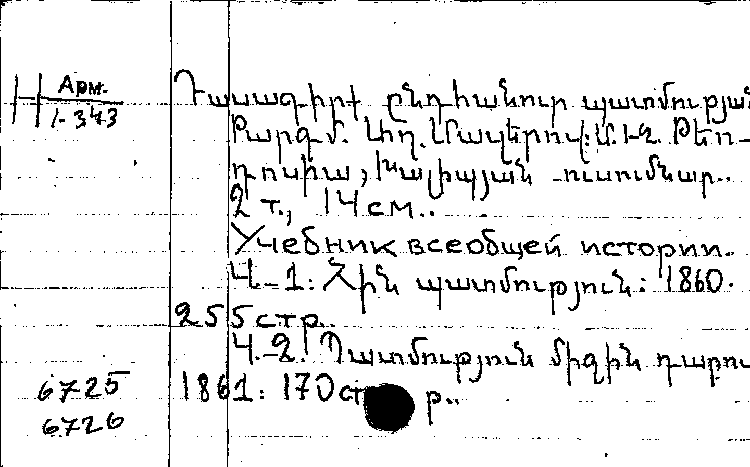 Арм.
1-343
Դասագիրք ընդհանուր պատմության
Թարգմ. Մ. 1-2. Թեո-
դոսիա, Խալիպյան ուսումնար..
2 т., 14 см..
Учебник всеобщей истории.
Ч.-1: Հին պատմություն: 1860.
255 стр..
Ч.-2. Պատմություն միջին դարու
6725 1861: 170 ст р..
6726